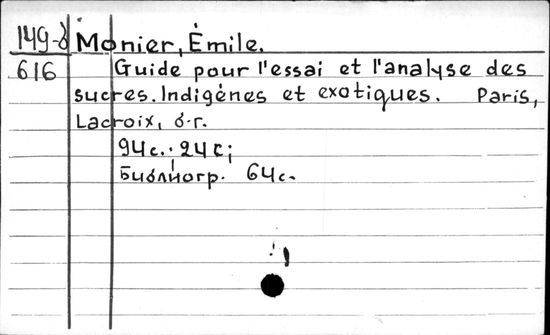 149-8 Monier, Émile.
616 Guide pour l'essai et l'analyse des
sucres. Indigènes et exotiques. Paris,
Lacroix, б.г.
94с.; 24с;
Библиогр. 64с.